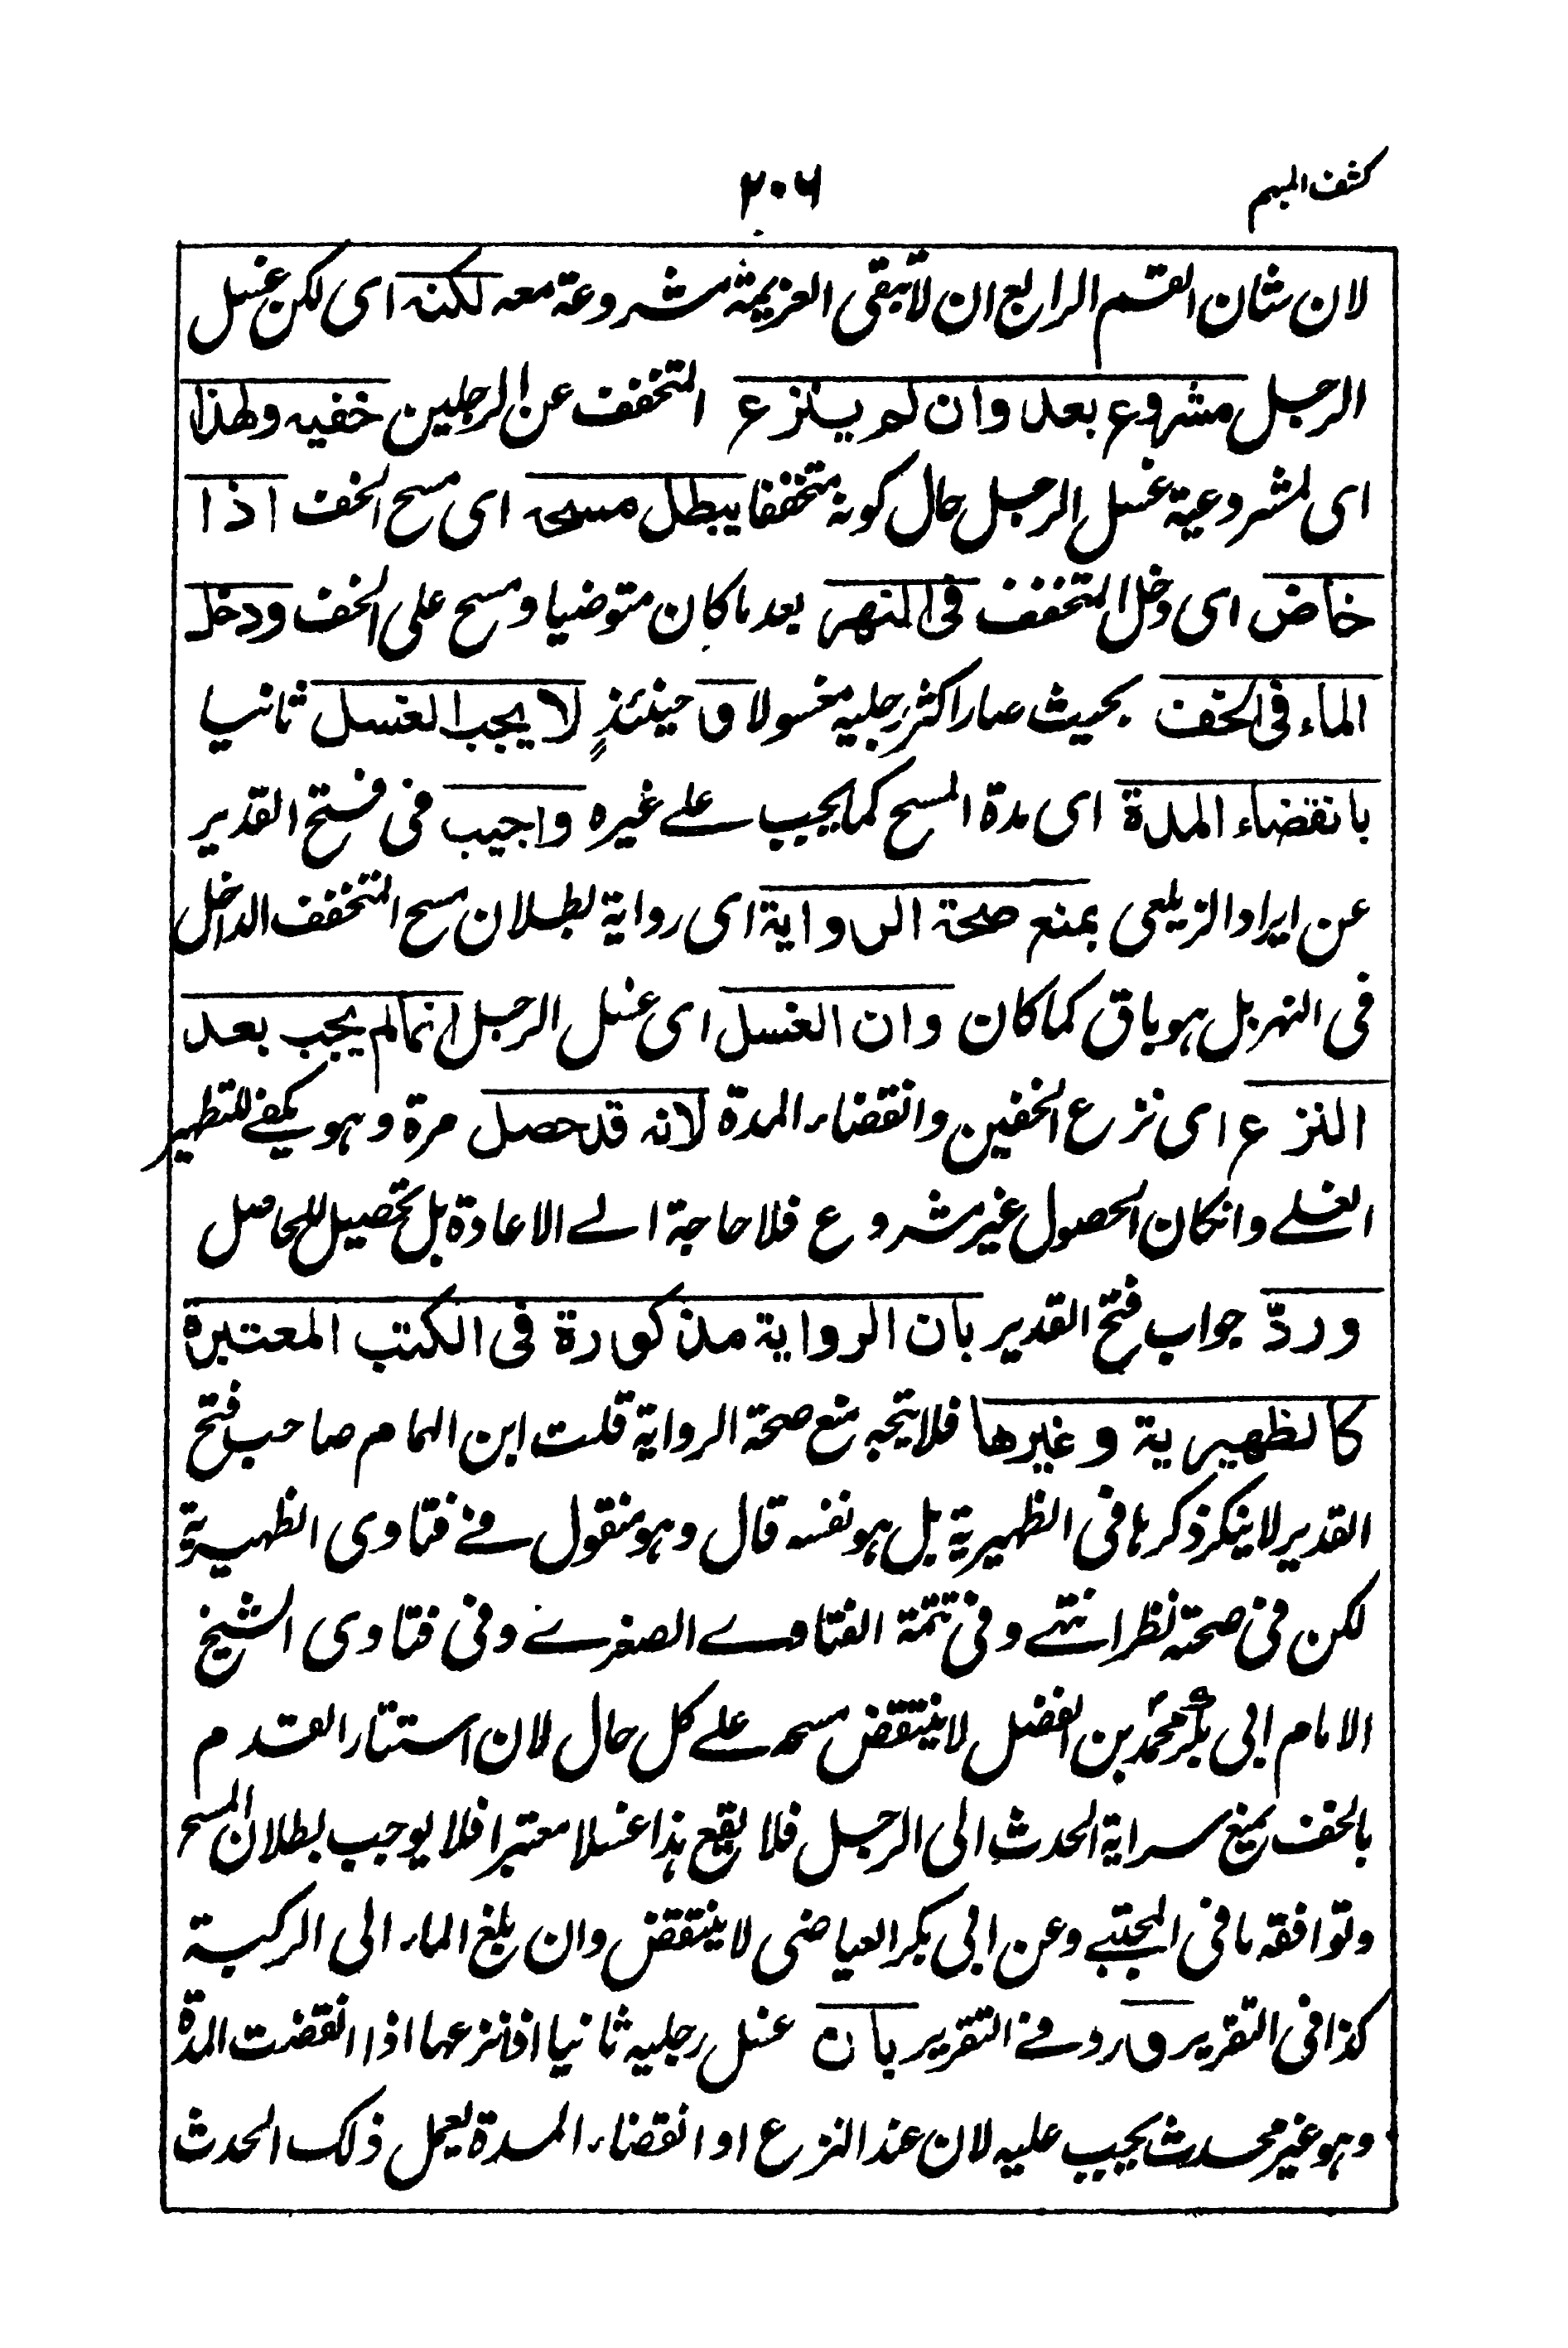 كشف المبهم
٢٠٦
لان شان القسم الرابع ان لا تبقى العزيمة مشروعة معه لكنه اى لكن غسل
الرجل مشروع بعد وان لم ينزع المتخفف عن الرجلين خفيه ولهذا
اى لمشروعية غسل الرجل حال كونه متخففا يبطل مسحه اى مسح الخف اذا
خاض اى دخل المتخفف فى النهر بعد ما كان متوضيا ومسح على الخف ودخل
الماء فى الخف بحيث صار اكثر رجليه مغسولا و حينئذٍ لا يجب الغسل ثانيا
بانقضاء المدة اى مدة المسح كما يجب علے غيره واجيب فى فتح القدير
عن ايراد الزيلعى بمنع صحة الرواية اى رواية بطلان مسح المتخفف الداخل
فى النهر بل هو باق كما كان وان الغسل اى غسل الرجل انما لم يجب بعد
النزع اى نزع الخفين وانقضاء المدة لانه قد حصل مرة وهو يكفے للتطهير
الغسلے وانكان الحصول غير مشروع فلا حاجة الے الاعادة بل تحصيل للحاصل
وردّ جواب فتح القدير بان الرواية مذكورة فى الكتب المعتبرة
كالظهيرية وغيرها فلا يتجه منع صحة الرواية قلت ابن الهمام صاحب فتح
القدير لا ينكر ذكرها فى الظهيرية بل هو نفسه قال وهو منقول فے فتاوى الظهيرية
لكن فى صحته نظر انتهے وفى تتمة الفتاوے الصغرے وفى فتاوى الشيخ
الامام ابى بكر محمد بن الفضل لا ينتقض مسحه علے كل حال لان استتار القدم
بالخف يمنع سراية الحدث الى الرجل فلا يقع هذا غسلا معتبرا فلا يوجب بطلان المسح
وتوافقه ما فى المجتبے وعن ابى بكر العياضى لا ينتقض وان بلغ الماء الى الركبة
كذا فى التقرير و رد فے التقرير بان غسل رجليه ثانيا اذا نزعهما اذا انقضت المدة
وهو غير محدث يجب عليه لان عند النزع او انقضاء المدة يعمل ذلك الحدث